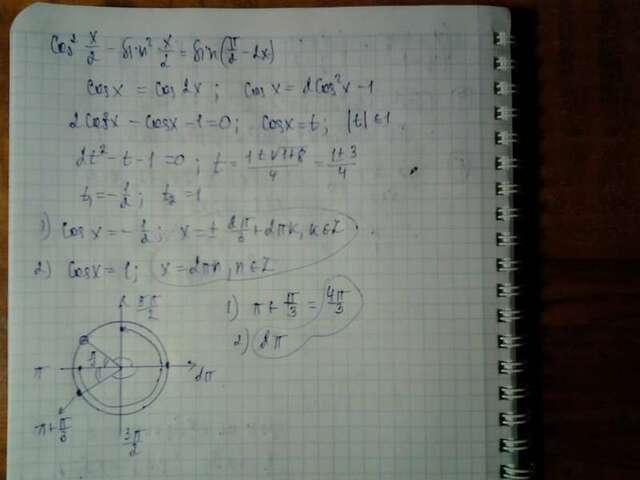 cos² x/2 - sin² x/2 = sin(π/2 - 2x)
cos x = cos 2x; cos x = 2cos²x - 1
2cos²x - cos x - 1 = 0; cos x = t, |t| ≤ 1
2t² - t - 1 = 0; t = (1 ± √1+8)/4 = (1 ± 3)/4
t₁ = -1/2; t₂ = 1
1) cos x = -1/2; x = ± 2π/3 + 2πk, k ∈ Z
2) cos x = 1; x = 2πn, n ∈ Z
5π/2
1) π + π/3 = 4π/3
2) 2π
π
2π
π + π/3
3π/2